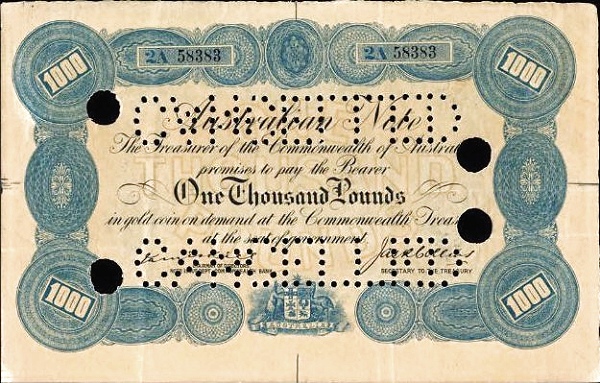 1000
2A 58383
2A 58383
1000
CANCELLED
Australian Note
The Treasurer of the Commonwealth of Australia
promises to pay the Bearer
One Thousand Pounds
in gold coin on demand at the Commonwealth Treasury
at the seat of government.
CANCELLED
NOTE ISSUE DEPT. COMMONWEALTH BANK
SECRETARY TO THE TREASURY
1000
AUSTRALIA
1000